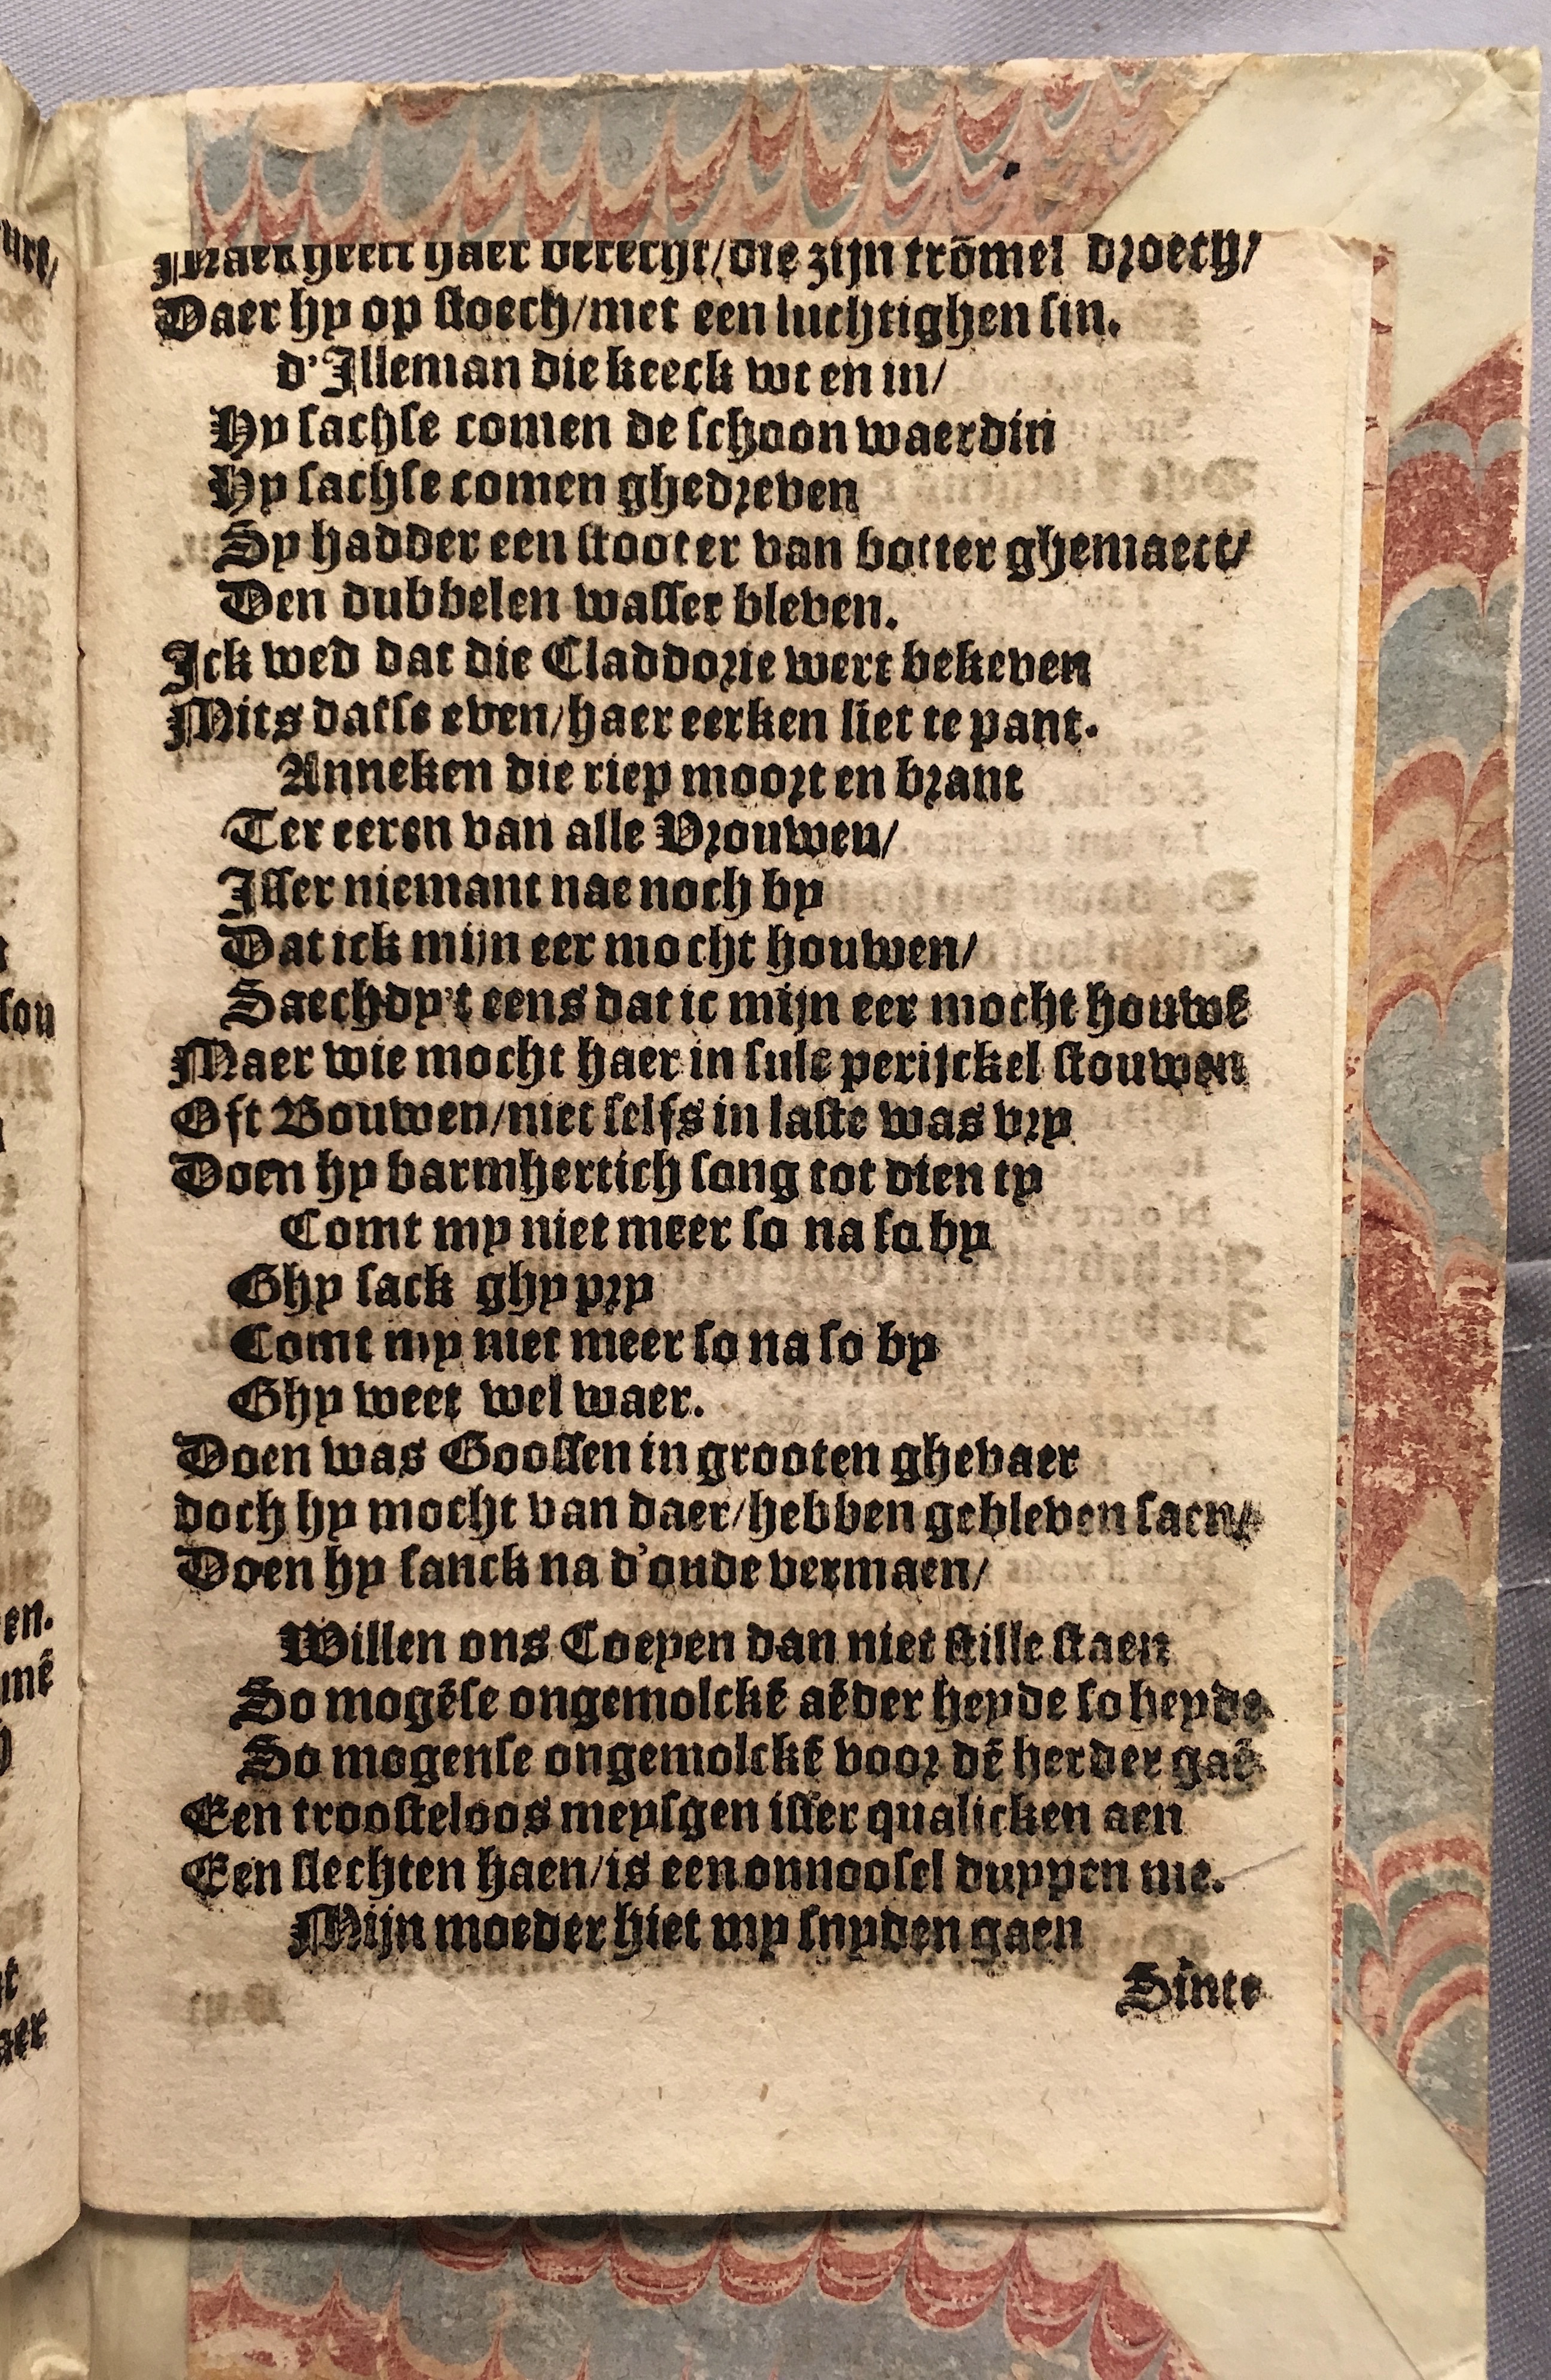 Maer heeft haer berecht/die zijn trōmel droech/
Daer hy op sloech/met een luchtighen sin.
d'Illeman die keeck wt en in/
Hy sachse comen de schoon waerdin
Hy sachse comen ghedreven
Sy hadder een stooter van botter ghemaect/
Den dubbelen wasser bleven.
Ick wed dat die Claddorie wert bekeven
Mits datse even/haer eerken liet te pant.
Anneken die riep moort en brant
Ter eeren van alle Vrouwen/
Isser niemant nae noch by
Dat ick mijn eer mocht houwen/
Saechdy't eens dat ic mijn eer mocht houwē
Maer wie mocht haer in sulc perijckel stouwen
Oft Bouwen/niet selfs in laste was vry
Doen hy barmhertich song tot dien ty
Comt my niet meer so na so by
Ghy sack ghy pry
Comt my niet meer so na so by
Ghy weet wel waer.
Doen was Goossen in grooten ghevaer
doch hy mocht van daer/hebben gebleven saen/
Doen hy sanck na d'oude vermaen/
Willen ons Coeyen dan niet stille staen
So mogēse ongemolckē aēder heyde so heyde
So mogense ongemolckē voor dē herder gaē
Een troosteloos meysgen isser qualicken aen
Een slechten haen/is een onnoosel duypen nie.
Mijn moeder hiet my snyden gaen
Sinte